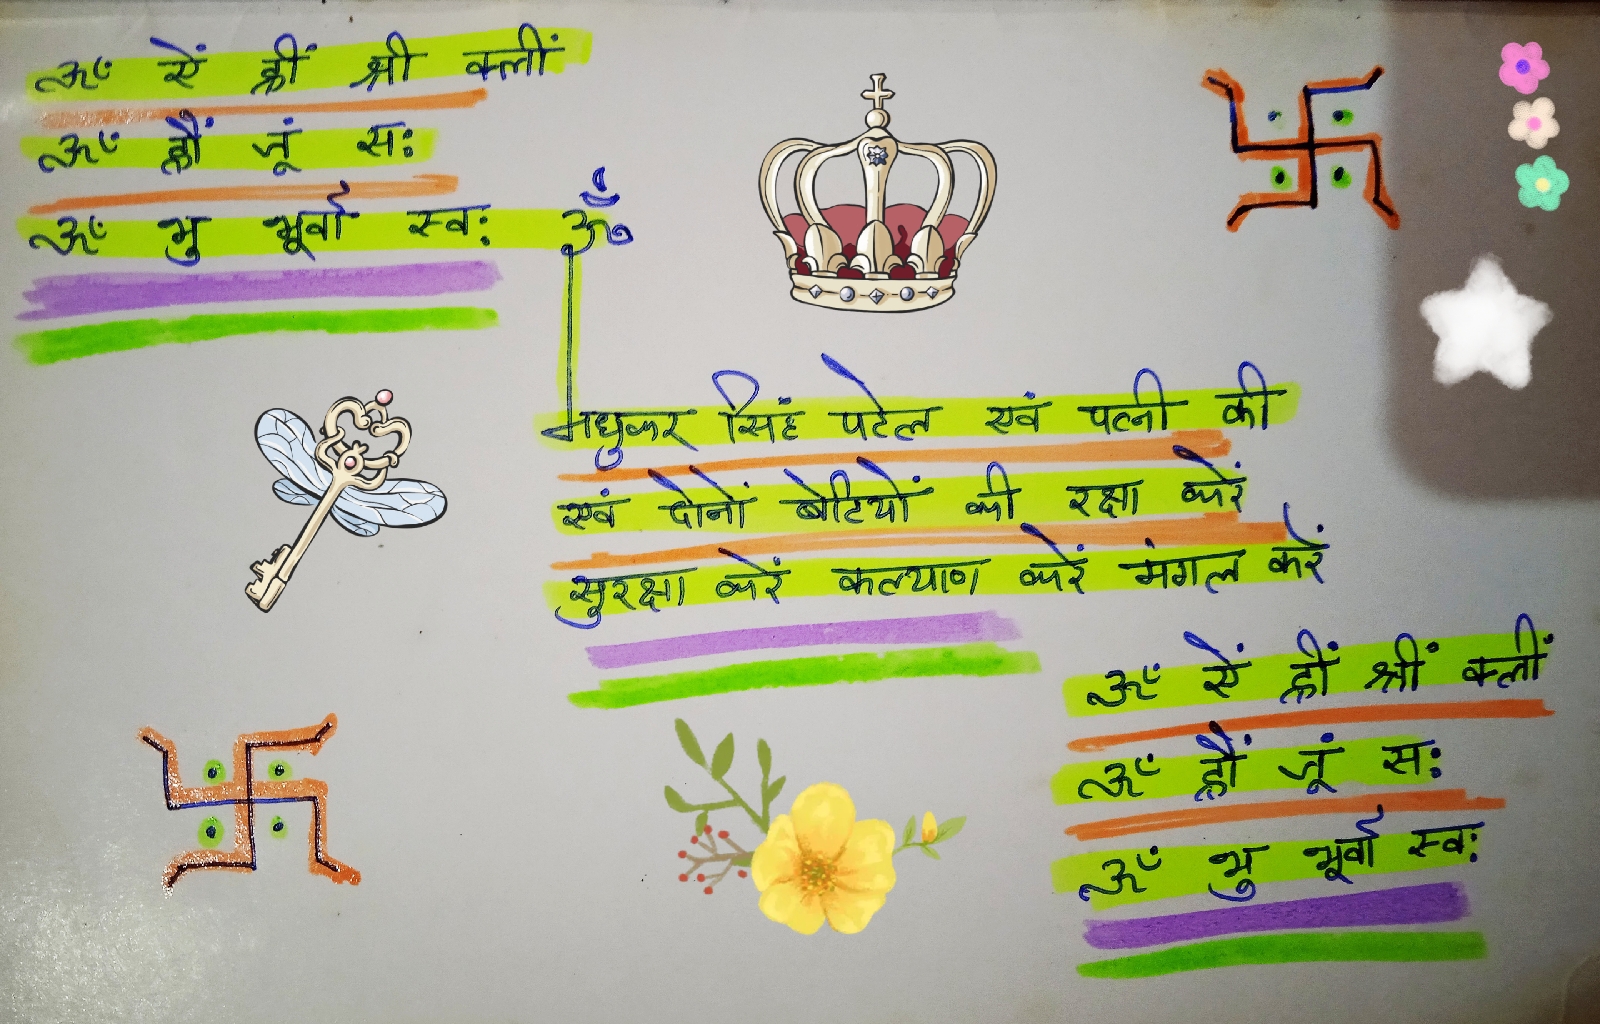 ॐ ऐं ह्रीं श्री क्लीं
ॐ ह्रौं जूं सः
ॐ भु भूर्वा स्वः ॐ
मधुकर सिंह पटेल एवं पत्नी की
एवं दोनों बेटियों की रक्षा करें
सुरक्षा करें कल्याण करें मंगल करें
ॐ ऐं ह्रीं श्रीं क्लीं
ॐ ह्रौं जूं सः
ॐ भु भूर्वा स्वः